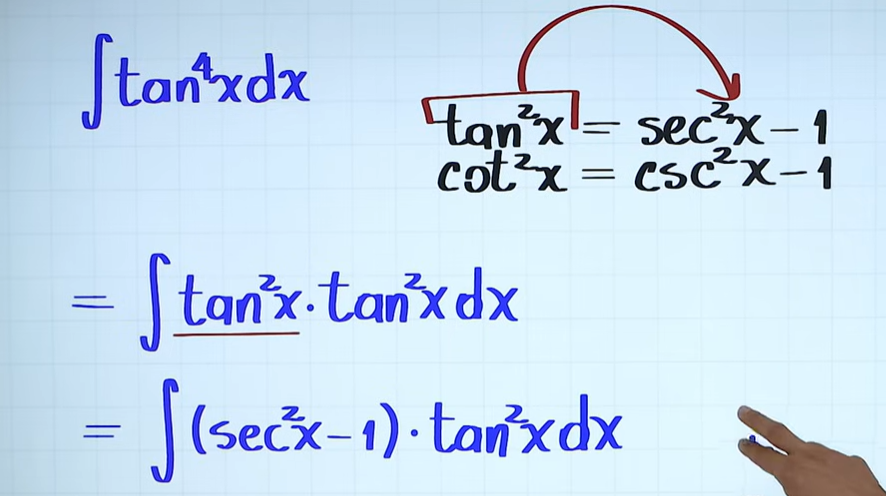 ∫tan⁴xdx
tan²x = sec²x − 1
cot²x = csc²x − 1
= ∫tan²x · tan²xdx
= ∫(sec²x − 1) · tan²xdx